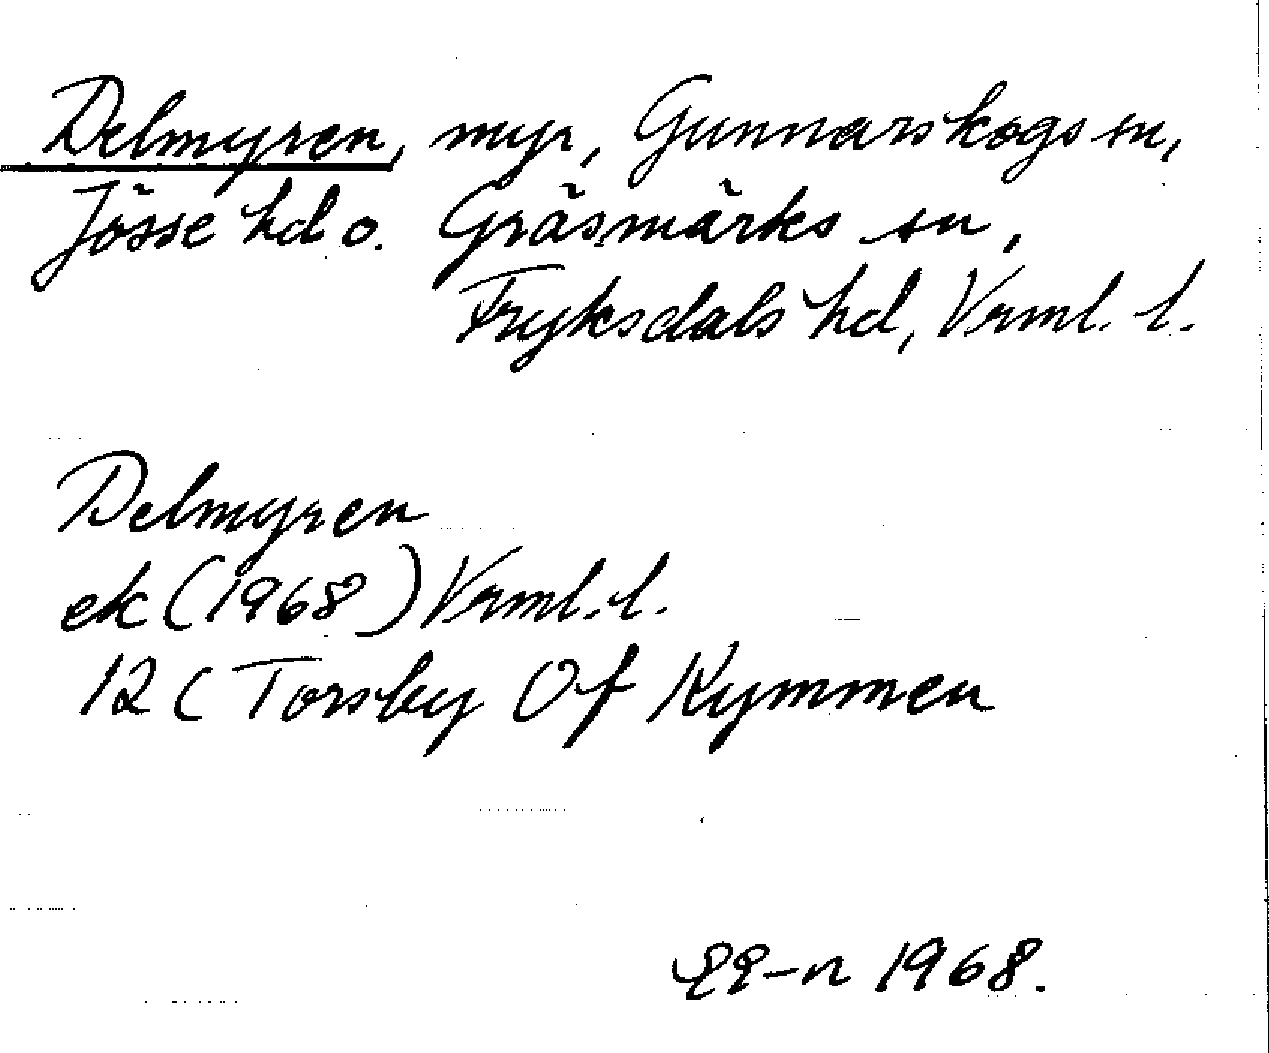 Delmyren, myr, Gunnarskogs sn,
Jösse hd o. Gräsmarks sn,
Fryksdals hd, Vrml. l.
Delmyren
ek (1968) Vrml. l.
12 C Torsby 0f Kymmen
1968.